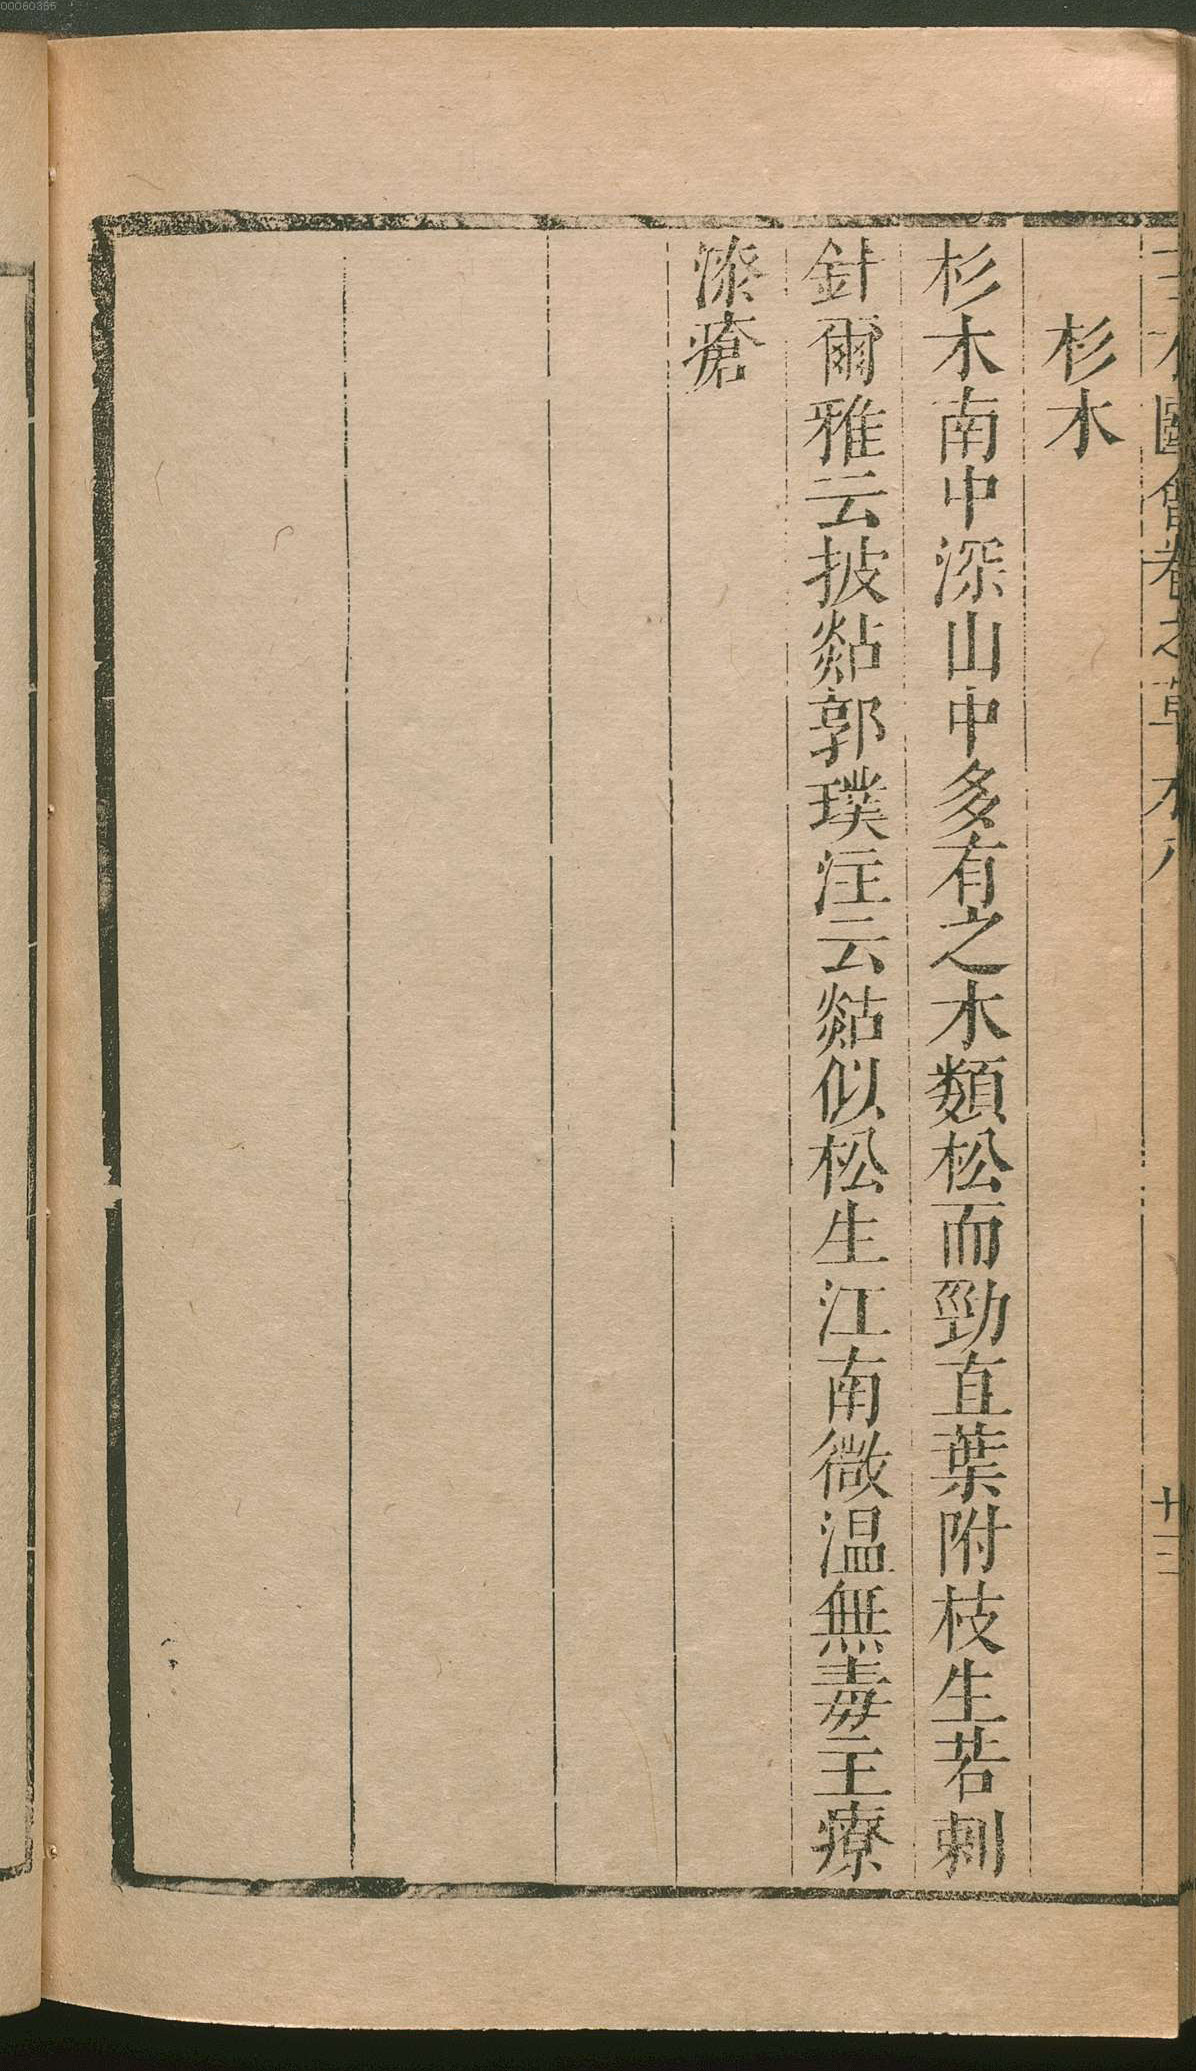 三才圖會卷之草木八　廿三
杉木
杉木南中深山中多有之木類松而勁直葉附枝生若刺
針爾雅云披煔郭璞注云煔似松生江南微温無毒主療
漆瘡